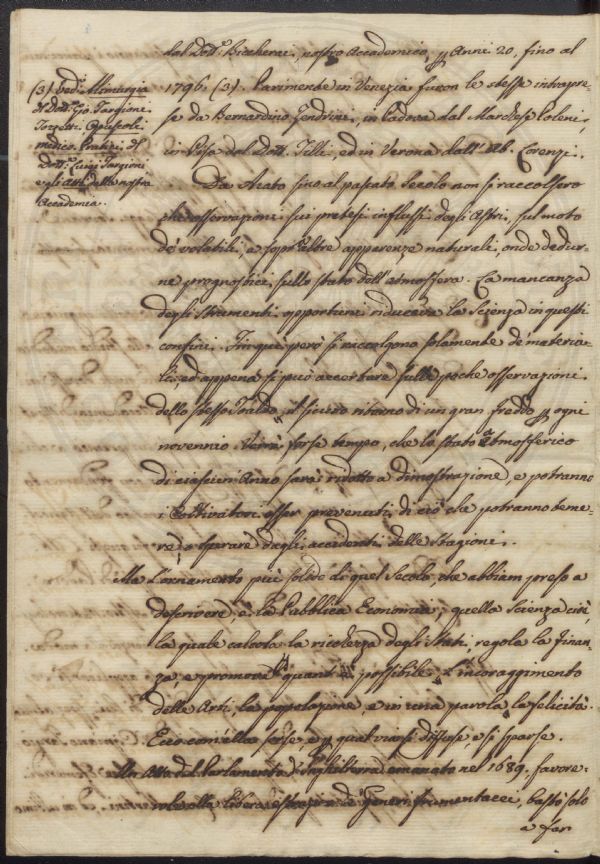 dal Dott.r Biccherai, nostro Accademico, p Anni 20, fino al
(3) Ved.i Alimurgia
di Dott. Gio: Targioni
Tozzetti. Opuscoli
medico Pratici del
Dott.r Luigi Targioni
e gli Atti della nostra
Accademia.
1796. (3). Parimente in Venezia furon le stesse intrapre=
se da Bernardino Zendrini, in Padova dal Marchese Poleni,
in Pisa dal Dott. Tilli, ed in Verona dall' Ab. Lorenzi.
Da Arato fino al passato Secolo non si raccolsero
che osservazioni sui pretesi influssi degli Astri, sul moto
de' volatili, e sopr' altre apparenze naturali, onde dedur=
ne prognostici sullo stato dell' atmosfera. La mancanza
degli Strumenti opportuni riduceva la Scienza in questi
confini. Fin qui però si raccolgono solamente de' materia=
li, ed appena si può accertare sulle poche osservazioni
dello stesso Toaldo, il sicuro ritorno di un gran freddo p ogni
novennio. Verrà forse tempo, che lo stato Atmosferico
di ciascun Anno sarà ridotto a dimostrazione, e potranno
i Coltivatori esser prevenuti di ciò che potranno teme=
re, o sperare dagli accidenti delle Stagioni.
Ma l'ornamento più solido di quel Secolo, che abbiam preso a
descrivere, è la Pubblica Economia; quella Scienza cioè,
la quale calcola la ricchezza degli Stati, regola la Finan=
za, e promove quant' è possibile l'incoraggimento
delle Arti, la popolazione, e in una parola la felicità.
Ecco com' ella sorse, e p quai si diffuse, e si sparse.
Un Atto del Parlamento d'Inghilterra emanato nel 1689. favore=
vole alla libera estrazion de' Generi frumentacei, bastò solo
a far